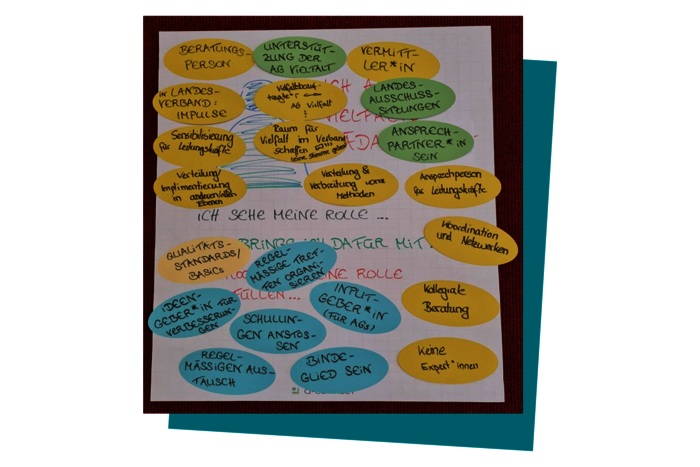 BERATUNGS-
PERSON
UNTERSTÜT-
ZUNG DER
AG VIELFALT
VERMITT-
LER*IN
IN LANDES-
VERBAND:
IMPULSE
AG Vielfalt
LANDES-
AUSSCHUSS-
SITZUNGEN
ICH A
Sensibilisierung
für Leitungskräfte
Raum für
Vielfalt im Verband
schaffen
ANSPRECH-
PARTNER*IN
SEIN
Verteilung/
Implimentierung
in anderen
Ebenen
Verteilung &
Verbreitung von
Methoden
Ansprechperson
für Leitungskräfte
ICH SEHE MEINE ROLLE ...
Koordination
und Netzwerken
BRINGE ICH DAFÜR MIT
QUALITÄTS-
STANDARDS/
BASICS
REGEL-
MÄSSIGE TREF-
FEN ORGANI-
SIEREN
NE ROLLE
FÜLLEN...
IDEEN-
GEBER*IN FÜR
VERBESSERUN-
GEN
INPUT-
GEBER*IN
(FÜR AGs)
Kollegiale
Beratung
SCHULUN-
GEN ANSTOS-
SEN
REGEL-
MÄSSIGEN AUS-
TAUSCH
BINDE-
GLIED SEIN
Keine
Expert*innen